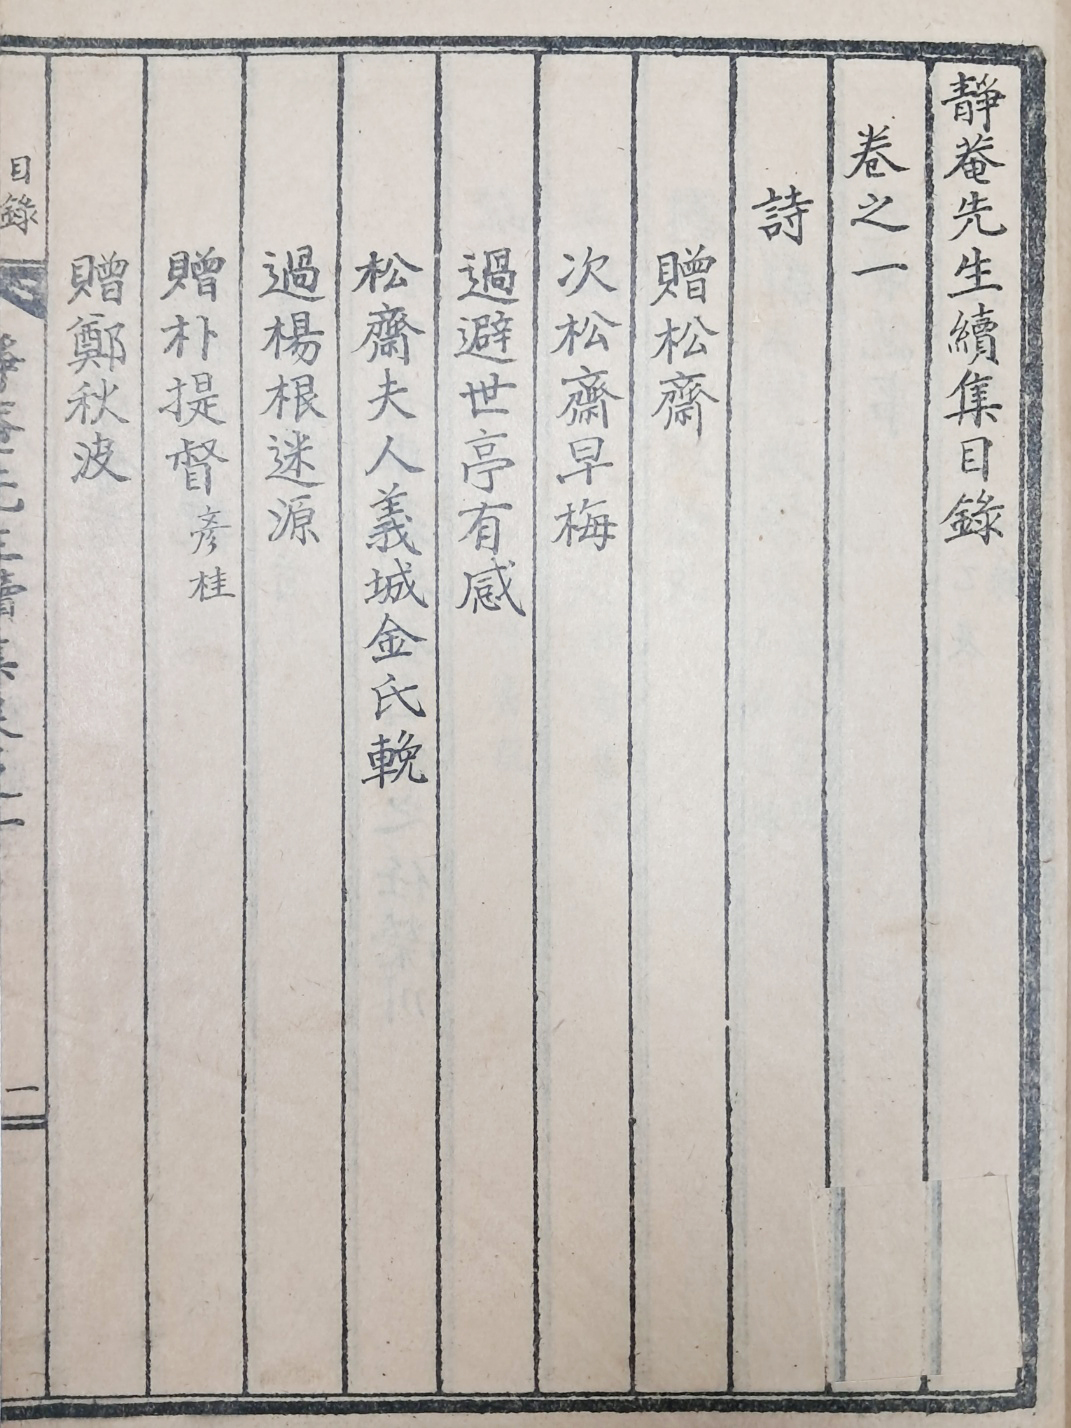 靜菴先生續集目錄
卷之一
詩
贈松齋
次松齋早梅
過避世亭有感
松齋夫人義城金氏輓
過楊根迷源
贈朴提督彥桂
贈鄭秋波
目錄
靜菴先生續集卷之一
一